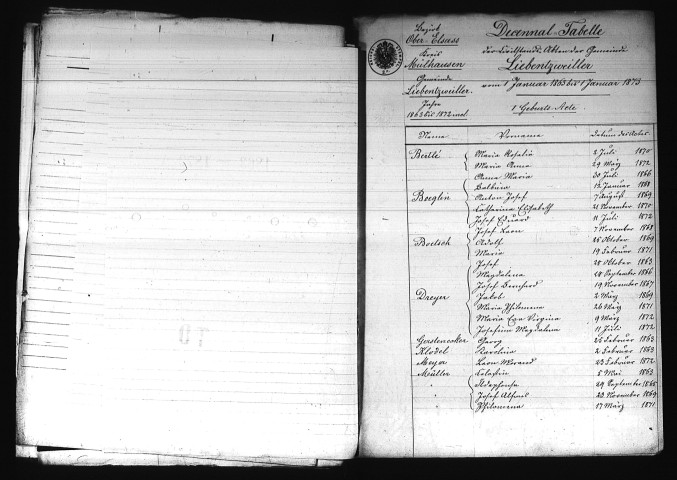 Bezirk
Ober-Elsass
Kreis
Mülhausen
Gemeinde
Liebentzweiller.
Jahre
1863 bis 1872 incl.
Decennal-Tabelle
der Civilstands-Akten der Gemeinde
Liebentzweiller
vom 1 Januar 1863 bis 1 Januar 1873
1 Geburts-Acte.
Name Vorname Datum der Acten
Bertlé Maria Rosalia 2 Juli 1870
Maria Anna 29 März 1872
Anna Maria 30 Juli 1866
Balbina 13 Januar 1868
Boeglin Anton Josef 7 August 1869
Catharina Elisabeth 21 November 1870
Josef Eduard 11 Juli 1872
Josef Leon 7 November 1868
Boetsch Adolf 25 Oktober 1869
Maria 19 Februar 1871
Josef 28 Oktober 1863
Magdalena 24 September 1866
Josef Bernhard 19 November 1867
Dreyer Jakob 2 März 1869
Maria Philomena 26 März 1871
Maria Eva Virginia 9 März 1872
Josefina Magdalena 11 Juli 1872
Gerstenecker Georg 25 Februar 1863
Klodel Karolina 2 Februar 1863
Meyer Leon Morand 23 Februar 1872
Müller Celestin 5 Mai 1863
" Ildephonse 29 September 1865
" Josef Alfred 23 November 1869
" Philomena 17 März 1871